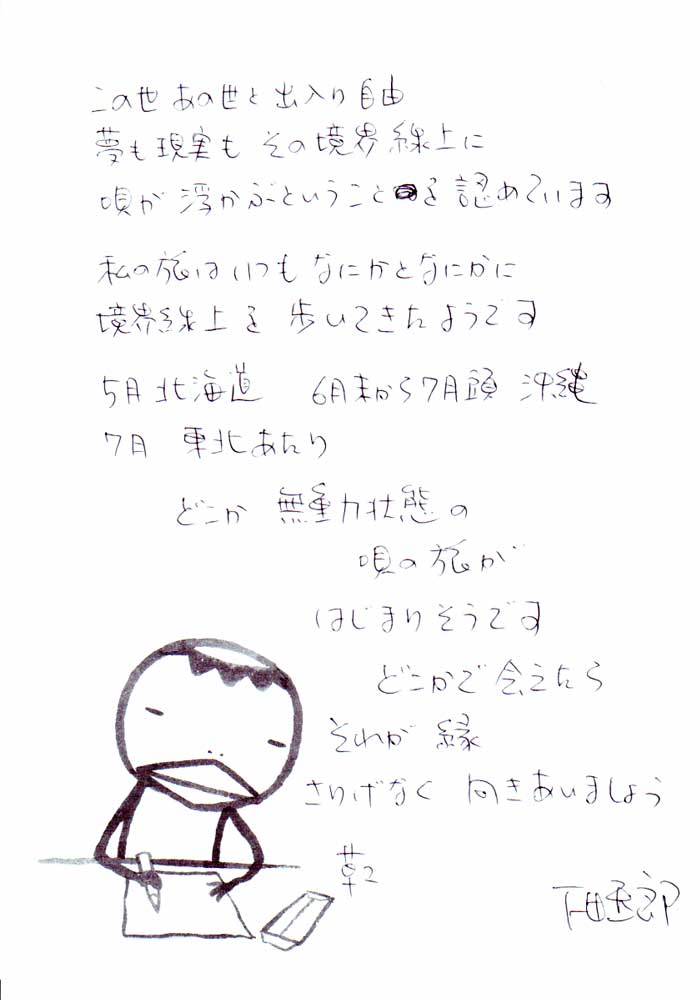 この世 あの世と 出入り 自由
夢も 現実も その境界線上に
唄が 浮かぶということを 認めています
私の旅は いつも なにかとなにかに
境界線上を 歩いてきたようです
5月 北海道 6月末から7月頭 沖縄
7月 東北あたり
どこか 無重力状態の
唄の旅が
はじまりそうです
どこかで 会えたら
それが 縁
さりげなく 向きあいましょう
草々
下田逸郎